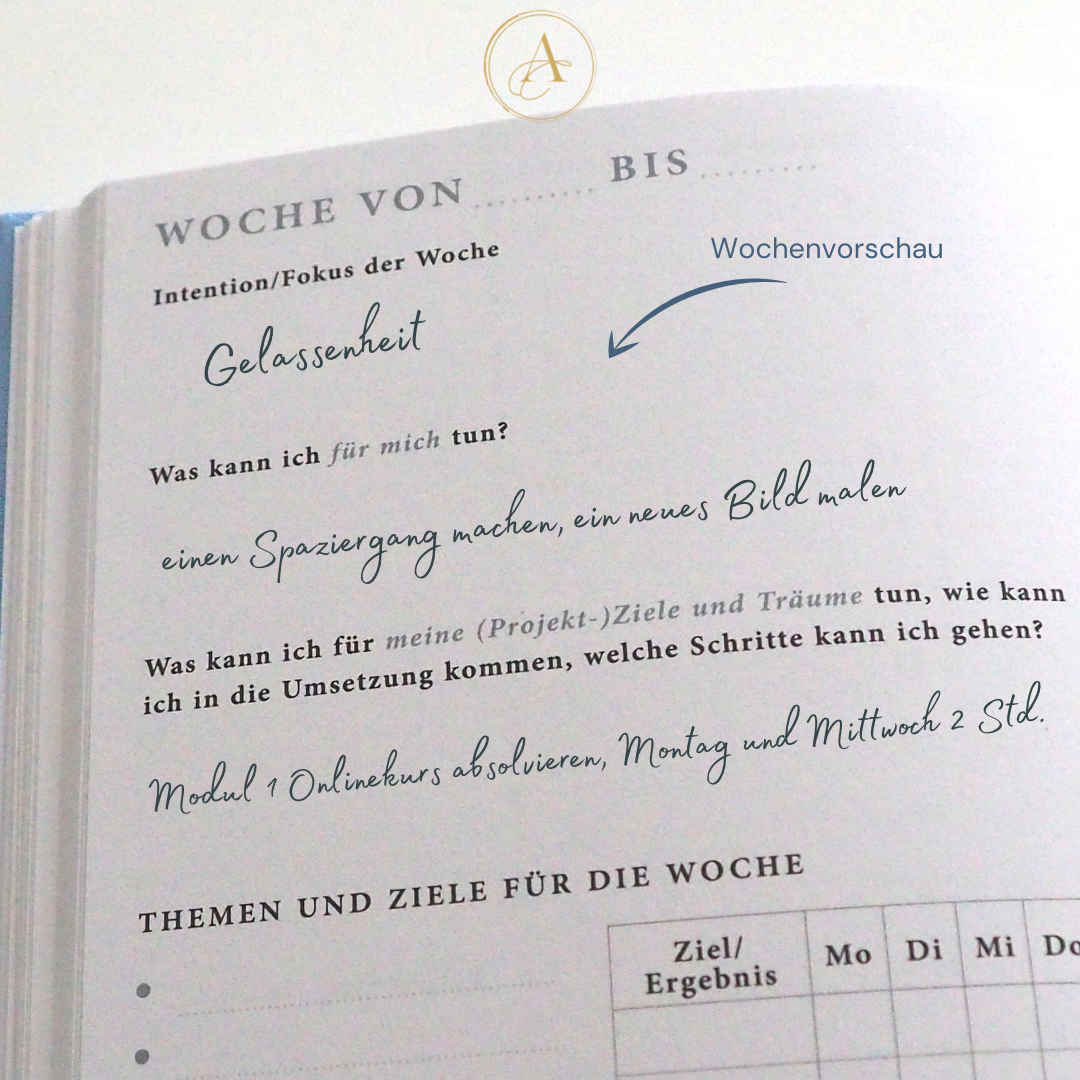 A
WOCHE VON .......... BIS ..........
Wochenvorschau
Intention/Fokus der Woche
Gelassenheit
Was kann ich für mich tun?
einen Spaziergang machen, ein neues Bild malen
Was kann ich für meine (Projekt-)Ziele und Träume tun, wie kann
ich in die Umsetzung kommen, welche Schritte kann ich gehen?
Modul 1 Onlinekurs absolvieren, Montag und Mittwoch 2 Std.
THEMEN UND ZIELE FÜR DIE WOCHE
Ziel/
Ergebnis Mo Di Mi Do